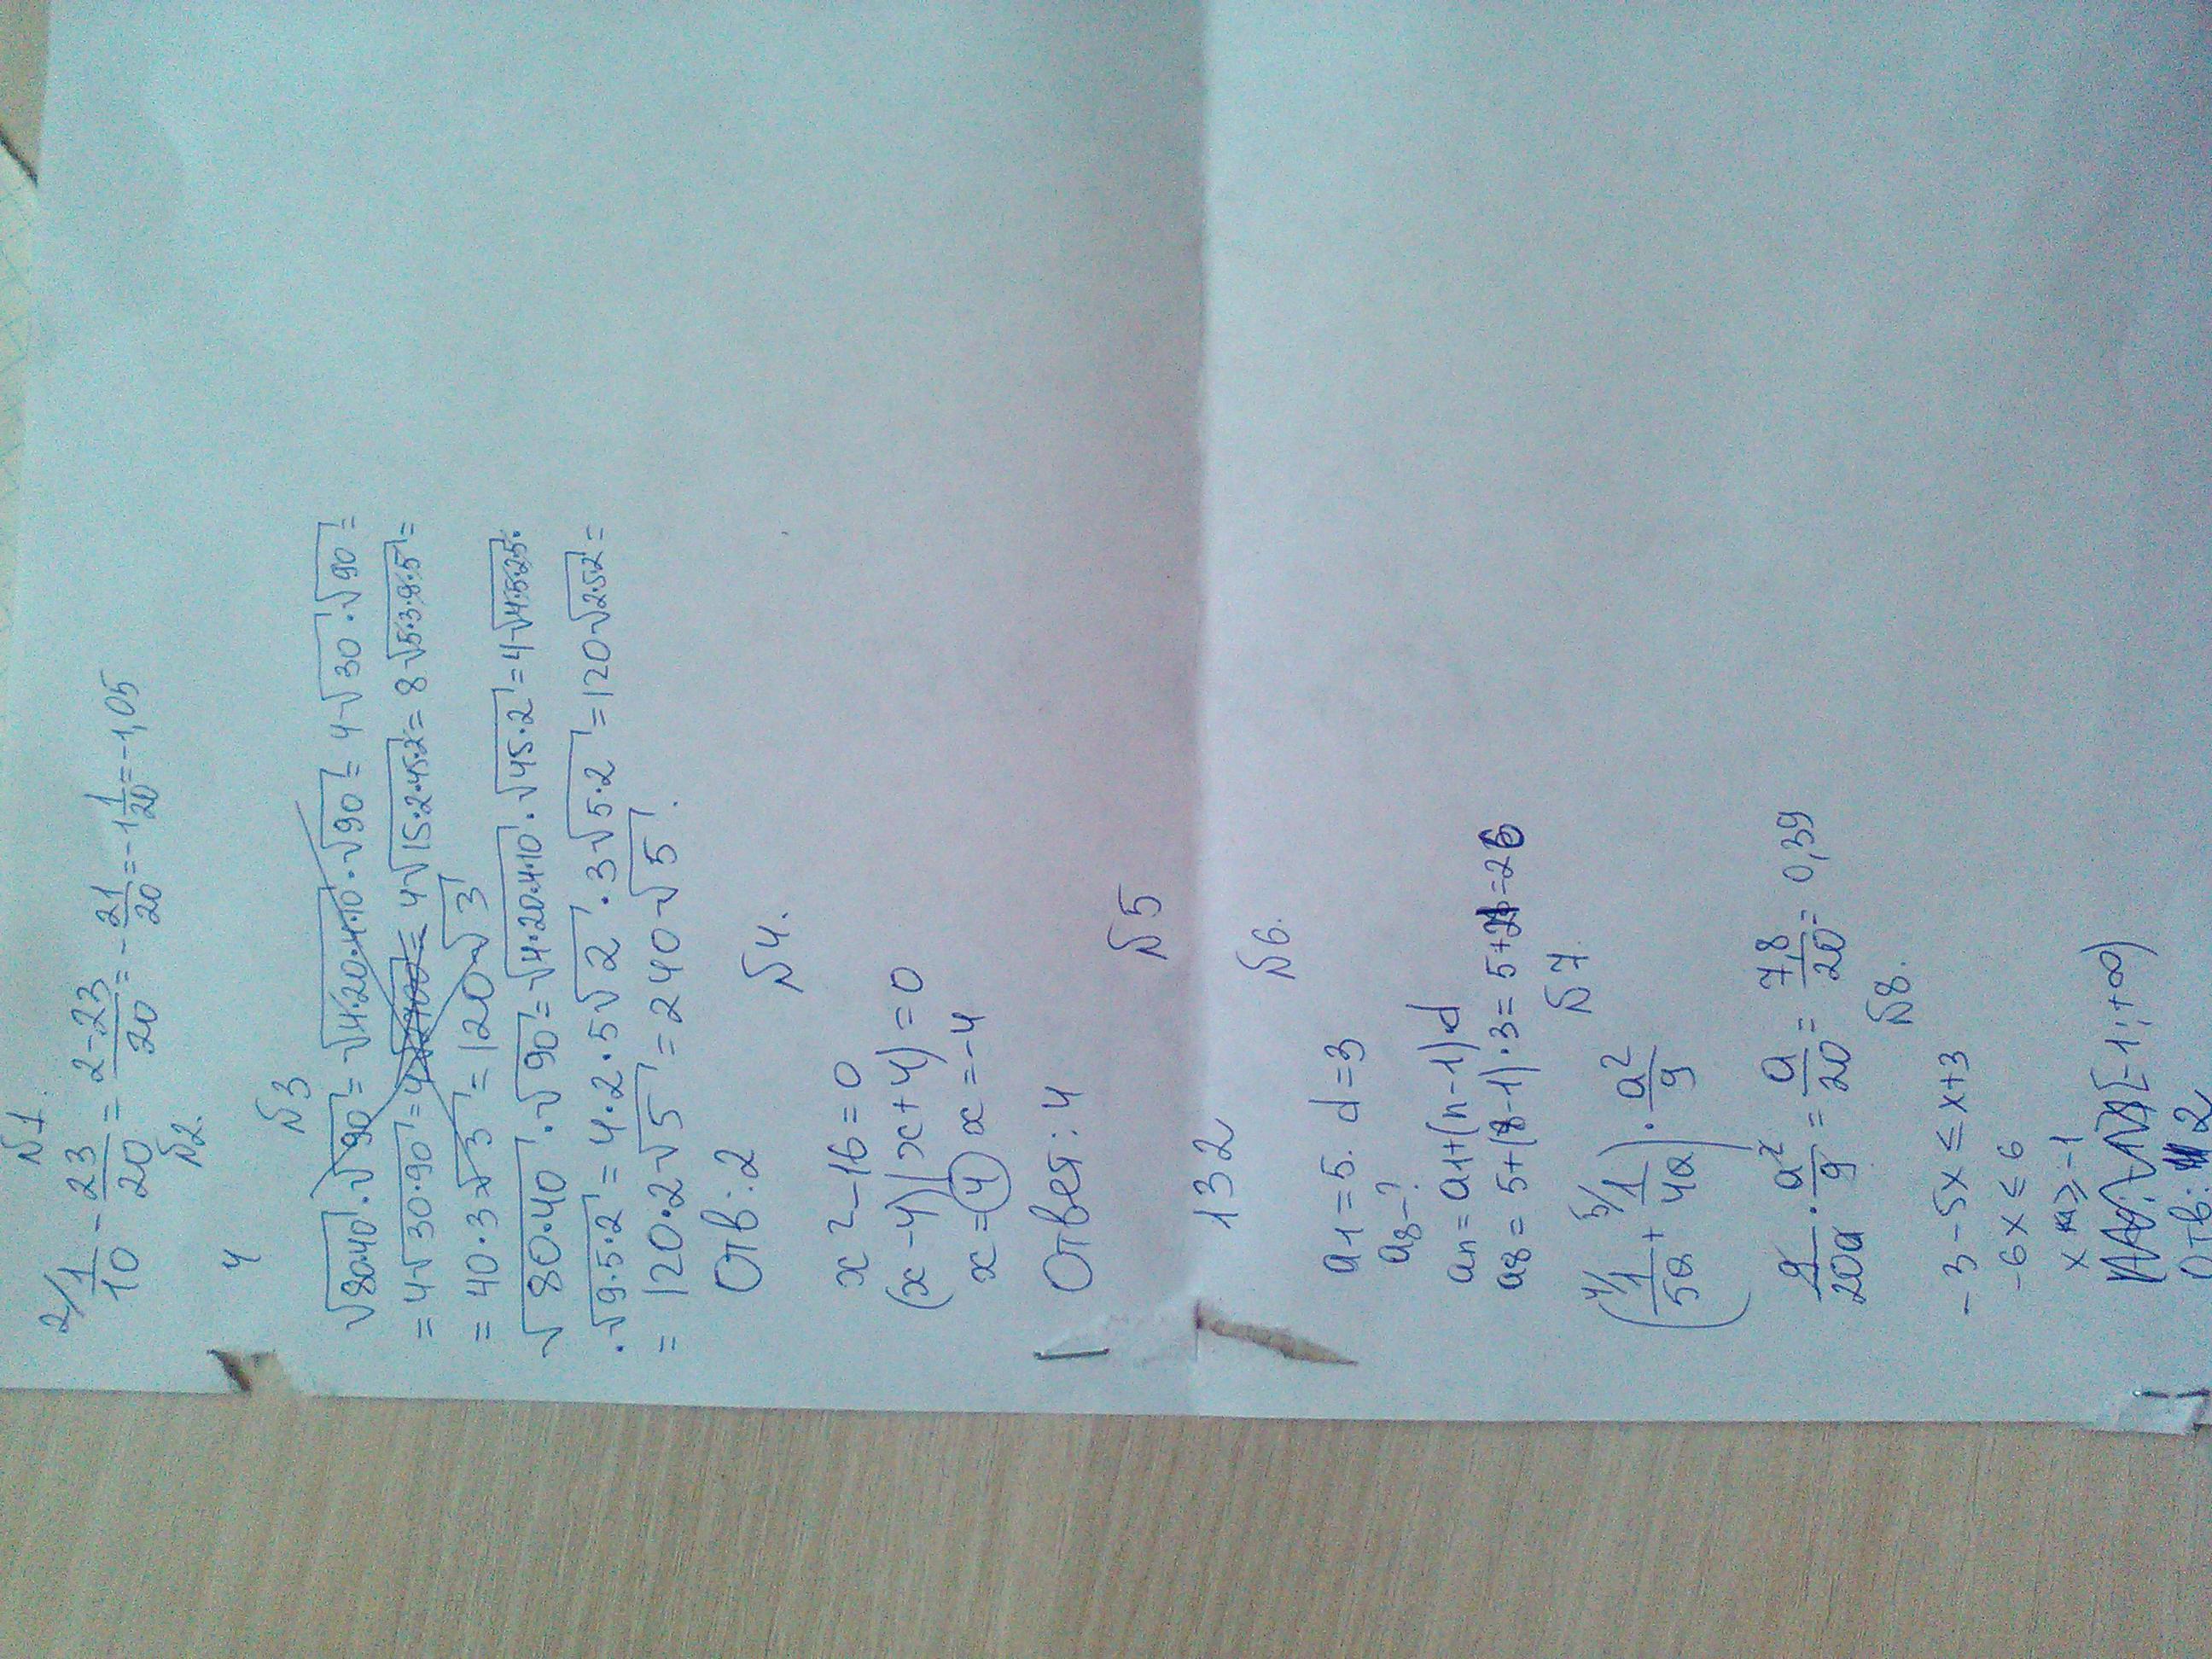 N1.
2/ 1/10 - 23/20 = 2-23/20 = - 21/20 = -1 1/20 = -1,05
N2.
4
N3
√80·40 · √90 = √4·20·4·10 · √90 = 4√30 · √90 =
= 4√30·90 = 4√15·2·45·2 = 8√5·3·9·5 =
= 40·3√3 = 120√3
√80·40 · √90 = √4·20·4·10 · √45·2 = 4√4·5·2·5 ·
· √9·5·2 = 4·2·5√2 · 3√5·2 = 120√2·5·2 =
= 120·2√5 = 240√5.
Отв: 2
N4.
x²-16=0
(x-4)(x+4)=0
x=4 x=-4
Ответ: 4
N5
132
N6.
a1=5. d=3
a8-?
an=a1+(n-1)·d
a8=5+(8-1)·3=5+21=26
N7.
(4/ 1/5a + 5/ 1/4a) · a²/9
9/20a · a²/9 = a/20 = 7,8/20 = 0,39
N8.
-3-5x≤x+3
-6x≤6
x≥-1
[-1;+∞)
Отв: 2